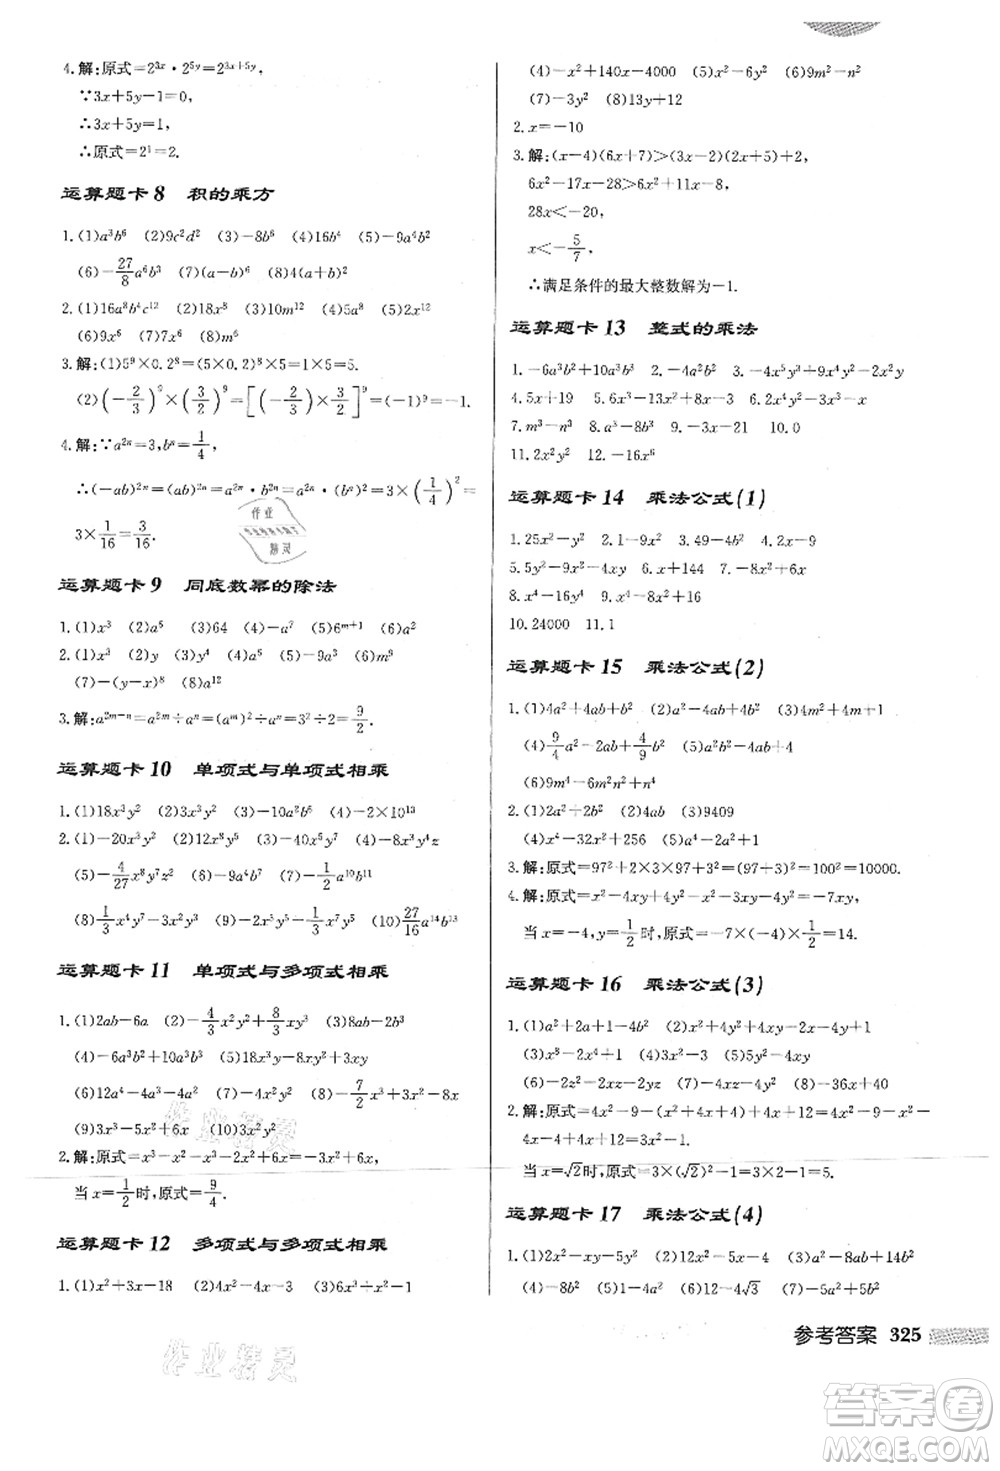 4.解:原式=2³ˣ·2⁵ʸ=2³ˣ⁺⁵ʸ,
∵3x+5y-1=0,
∴3x+5y=1,
∴原式=2¹=2.
运算题卡 8 积的乘方
1.(1)a³b⁶ (2)9c²d² (3)-8b⁶ (4)16b⁴ (5)-9a⁴b²
(6)-27/8 a⁶b³ (7)(a-b)⁶ (8)4(a+b)²
2.(1)16a⁸b⁴c¹² (2)18x⁸ (3)10m¹² (4)5a⁸ (5)a¹²
(6)9x⁶ (7)9x⁶ (8)m⁶
3.解:(1)5⁹×0.2⁸=(5×0.2)⁸×5=1×5=5.
(2)(-2/3)⁹×(3/2)⁹=[(-2/3)×3/2]⁹=(-1)⁹=-1.
4.解:∵a²ⁿ=3,bⁿ=1/4,
∴(-ab)²ⁿ=(ab)²ⁿ=a²ⁿ·b²ⁿ=a²ⁿ·(bⁿ)²=3×(1/4)²=
3×1/16=3/16.
运算题卡 9 同底数幂的除法
1.(1)x³ (2)a⁵ (3)64 (4)-a⁷ (5)6ᵐ⁺¹ (6)a²
2.(1)m³ (2)y (3)y⁴ (4)ab² (5)a³ (6)m⁹
(7)-(y-x)⁴ (8)2¹²
3.解:a²ᵐ⁻ⁿ=a²ᵐ÷aⁿ=(aᵐ)²÷aⁿ=3²÷2=9/2.
运算题卡 10 单项式与单项式相乘
1.(1)18x³y² (2)3x³y³ (3)-10a²b⁶ (4)-2×10¹³
2.(1)-20a²b⁴ (2)12x⁸y⁵ (3)-40x⁵y⁷ (4)-x³y⁴z²
(5)-4/27x⁸y⁷z² (6)-9a⁴b⁵ (7)1/3a¹⁰b¹¹
(8)1/3x⁴y³-x²y³ (9)-2x³y⁵-1/3x³y⁵ (10)27/16a¹⁴b¹³
运算题卡 11 单项式与多项式相乘
1.(1)2ab-6a (2)-4/3x²y²+8/3xy³ (3)8ab-2b³
(4)-6a³b²+10a³b³ (5)6x³y-3xy²
(6)12a⁴-4a³-8a² (7)-7/2x²y² (8)-8x
(9)3x³-5x²+6x (10)3x²y²
2.解:原式=x³-x²-x³-x²+x=-2x²+x,
当x=1/2时,原式=9/4.
运算题卡 12 多项式与多项式相乘
1.(1)x²+3x-18 (2)4x²-4x-3 (3)6x²+x-1
(4)-x²+140x-4000 (5)x²-y² (6)9m²-n²
(7)-3y² (8)13y+12
2.x=-10
3.解:(x-4)(6x+7)>(3x-2)(2x+5)+2,
6x²-17x-28>6x²+11x-8,
28x<-20,
x<-5/7.
∴满足条件的最大整数解为-1.
运算题卡 13 整式的乘法
1.-6a³b²+10a³b³ 2.-4a² 3.-4x⁵y³+9x⁴y⁴-2x²y
4.5x+19 5.x³+8y³ 6.2x⁴-3x³-x²
7.m³-n³ 8.a³-8b³ 9.-3x-21 10.0
11.2x² 12.-16x⁶
运算题卡 14 乘法公式(1)
1.25x²-y² 2.1-9x² 3.49-4b² 4.x-9
5.5y²-9x² 6.x+144 7.-2x²+6x
8.x⁴-16y⁴ 9.x⁴-1
10.24000 11.1
运算题卡 15 乘法公式(2)
1.(1)4a²+4ab+b² (2)x²-4xy+4y² (3)4m²+4m+1
(4)9/4a²-2ab+4/9b² (5)a²-4ab+4
(6)9m⁴-6m²n²+n²
2.(1)2a²+2b² (2)4ab (3)9409
(4)x⁴-32x²+256 (5)a⁴-2a²+1
3.解:原式=97²+2×3×97+3²=(97+3)²=100²=10000.
4.解:原式=x²-4xy+4y²-x²-3xy-4y²=-7xy,
当x=-4,y=1/2时,原式=-7×(-4)×1/2=14.
运算题卡 16 乘法公式(3)
1.(1)a²+2a+1-4b² (2)x²-4y²+4y-1
(3)x⁸-2x⁴+1 (4)-5y²-4xy
(5)-2z²-2yz (6)-4c²+4ac (7)-36x+325
2.解:原式=4x²-9-4x²+4x+x²-4x+4=x²-5
4x-4=3x²-12x+13.
当x=√2时,原式=3×(√2)²-1=3×2-1=5.
运算题卡 17 乘法公式(4)
1.(1)2x²-xy-5y² (2)12x²-5x-4 (3)8ab-4b²
(4)-8b² (5)1-4a² (6)12-4√3 (7)-5a²+5b²
参考答案 325
作业
精灵
作业精灵
作业精灵
答案圈
MXQE.COM